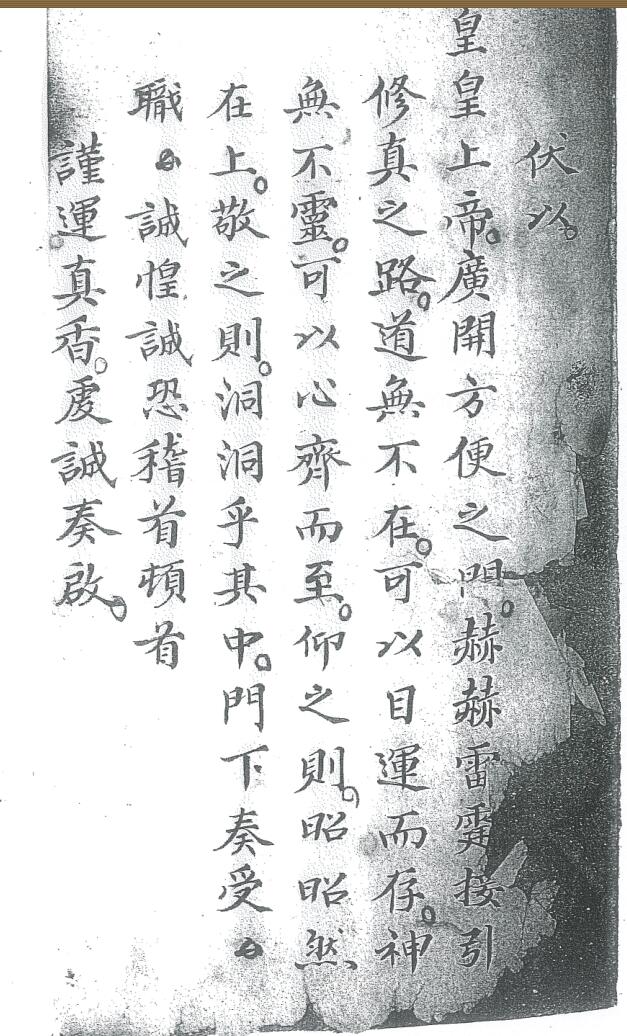 伏以。
皇皇上帝。廣開方便之門。赫赫雷霆接引
修真之路。道無不在。可以目運而存。神
無不靈。可以心齊而至。仰之則。昭昭然
在上。敬之則。洞洞乎其中。門下奏受厶
職厶誠惶誠恐稽首頓首
謹運真香。虔誠奏啟。